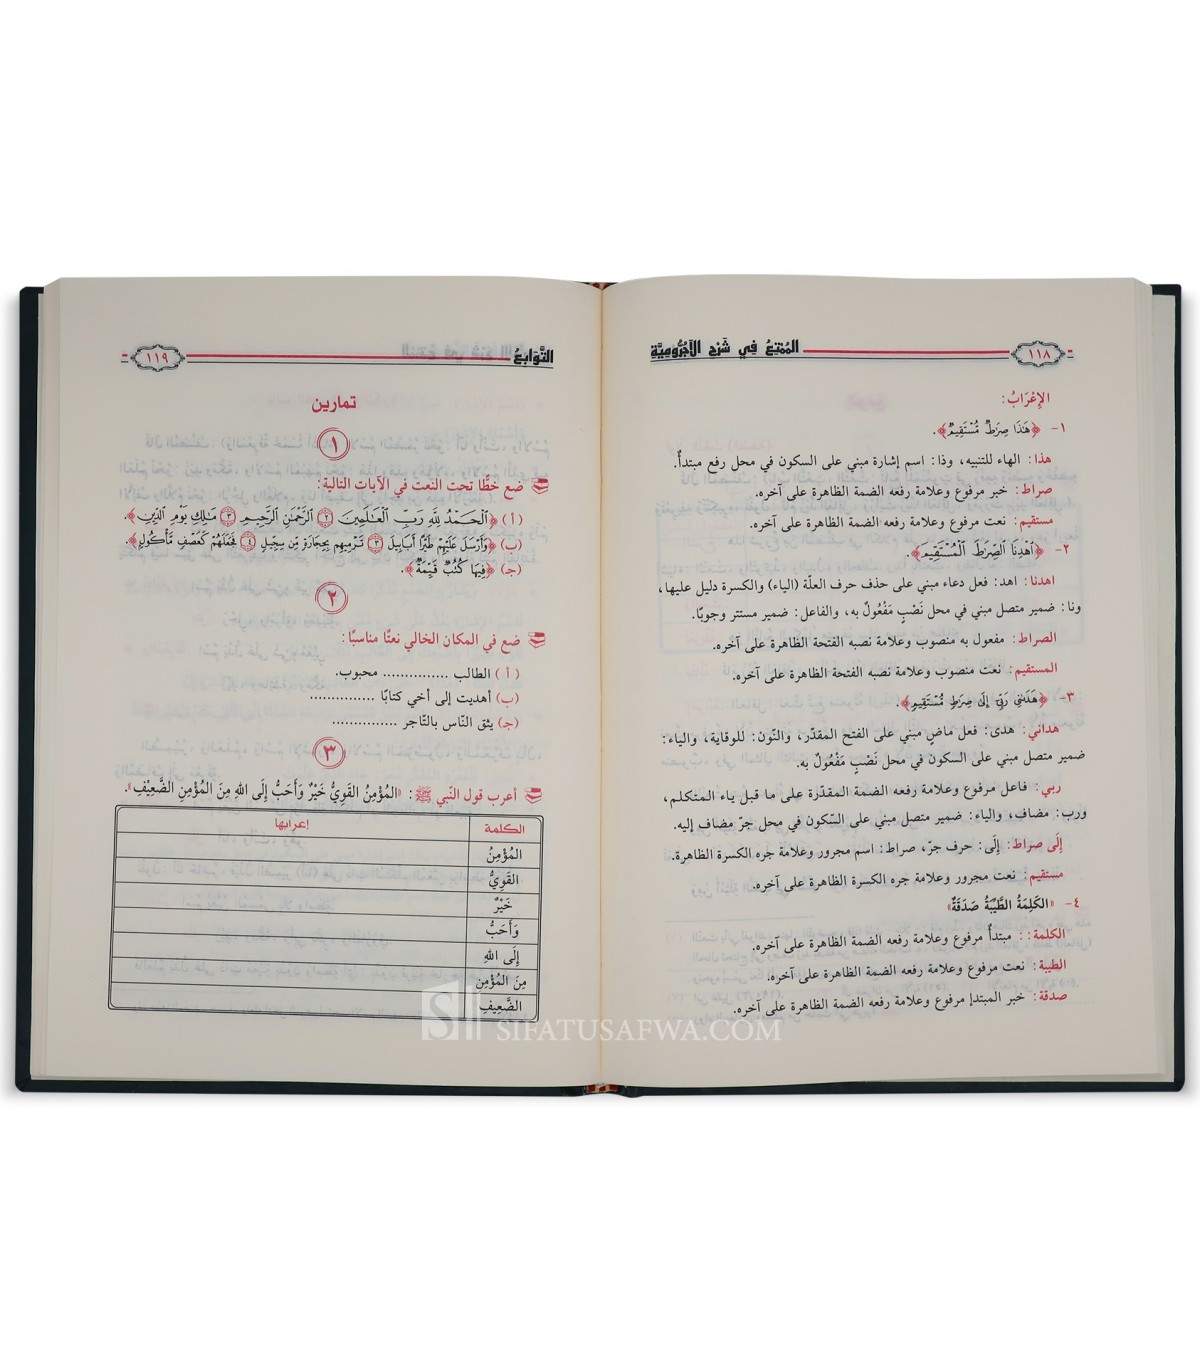 المُمْتِعُ فِي شَرْحِ الآجُرُّومِيَّةِ
١١٨
الإِعْرَابُ:
١- ﴿هَٰذَا صِرَٰطٌ مُّسْتَقِيمٌ﴾.
هذا: الهاء للتنبيه، وذا: اسم إشارة مبني على السكون في محل رفع مبتدأٌ.
صراط: خبر مرفوع وعلامة رفعه الضمة الظاهرة على آخره.
مستقيم: نعت مرفوع وعلامة رفعه الضمة الظاهرة على آخره.
٢- ﴿ٱهْدِنَا ٱلصِّرَٰطَ ٱلْمُسْتَقِيمَ﴾.
اهدنا: اهد: فعل دعاء مبني على حذف حرف العلّة (الياء) والكسرة دليل عليها،
ونا: ضمير متصل مبني في محل نَصْبٍ مَفْعُولٌ به، والفاعل: ضمير مستتر وجوبًا.
الصراط: مفعول به منصوب وعلامة نصبه الفتحة الظاهرة على آخره.
المستقيم: نعت منصوب وعلامة نصبه الفتحة الظاهرة على آخره.
٣- ﴿هَدَىٰنِي رَبِّيٓ إِلَىٰ صِرَٰطٍ مُّسْتَقِيمٍ﴾.
هداني: هدى: فعل ماضٍ مبني على الفتح المقدّر، والنّون: للوقاية، والياء:
ضمير متصل مبني على السكون في محل نَصْبٍ مَفْعُولٌ به.
ربي: فاعل مرفوع وعلامة رفعه الضمة المقدّرة على ما قبل ياء المتكلم،
ورب: مضاف، والياء: ضمير متصل مبني على السّكون في محل جرّ مضاف إليه.
إلَى صراط: إلَى: حرف جرّ، صراط: اسم مجرور وعلامة جره الكسرة الظاهرة.
مستقيم: نعت مجرور وعلامة جره الكسرة الظاهرة على آخره.
٤- «الكَلِمَةُ الطَّيِّبَةُ صَدَقَةٌ»
الكلمة: : مبتدأ مرفوع وعلامة رفعه الضمة الظاهرة على آخره.
الطيبة: نعت مرفوع وعلامة رفعه الضمة الظاهرة على آخره.
صدقة: خبر المبتدإ مرفوع وعلامة رفعه الضمة الظاهرة على آخره.
التَّوَابعُ
١١٩
تمارين
١
ضع خطًّا تحت النعت في الآيات التالية:
(أ) ﴿ٱلْحَمْدُ لِلَّهِ رَبِّ ٱلْعَٰلَمِينَ ٢ ٱلرَّحْمَٰنِ ٱلرَّحِيمِ ٣ مَٰلِكِ يَوْمِ ٱلدِّينِ﴾.
(ب) ﴿وَأَرْسَلَ عَلَيْهِمْ طَيْرًا أَبَابِيلَ ٣ تَرْمِيهِم بِحِجَارَةٍ مِّن سِجِّيلٍ ٤ فَجَعَلَهُمْ كَعَصْفٍ مَّأْكُولٍۭ﴾.
(جـ) ﴿فِيهَا كُتُبٌ قَيِّمَةٌ﴾.
٢
ضع في المكان الخالي نعتًا مناسبًا:
(أ) الطالب ............... محبوب.
(ب) أهديت إلى أخي كتابًا ...............
(جـ) يثق النّاس بالتّاجر ...............
٣
أعرب قول النّبي ﷺ: «المُؤْمِنُ القَوِيُّ خَيْرٌ وَأَحَبُّ إِلَى اللهِ مِنَ المُؤْمِنِ الضَّعِيْفِ».
الكلمة إعرابها
المُؤْمِنُ
القَوِيُّ
خَيْرٌ
وَأَحَبُّ
إِلَى اللهِ
مِنَ المُؤْمِنِ
الضَّعِيفِ
SIFATUSAFWA.COM